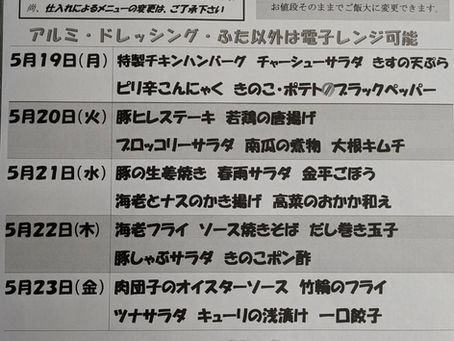 尚、仕入れによるメニューの変更は、ご了承下さい
お値段そのままでご飯大に変更できます。
アルミ・ドレッシング・ふた以外は電子レンジ可能
5月19日(月) 特製チキンハンバーグ チャーシューサラダ きすの天ぷら
ピリ辛こんにゃく きのこ・ポテトのブラックペッパー
5月20日(火) 豚ヒレステーキ 若鶏の唐揚げ
ブロッコリーサラダ 南瓜の煮物 大根キムチ
5月21日(水) 豚の生姜焼き 春雨サラダ 金平ごぼう
海老とナスのかき揚げ 高菜のおかか和え
5月22日(木) 海老フライ ソース焼きそば だし巻き玉子
豚しゃぶサラダ きのこポン酢
5月23日(金) 肉団子のオイスターソース 竹輪のフライ
ツナサラダ キューリの浅漬け 一口餃子